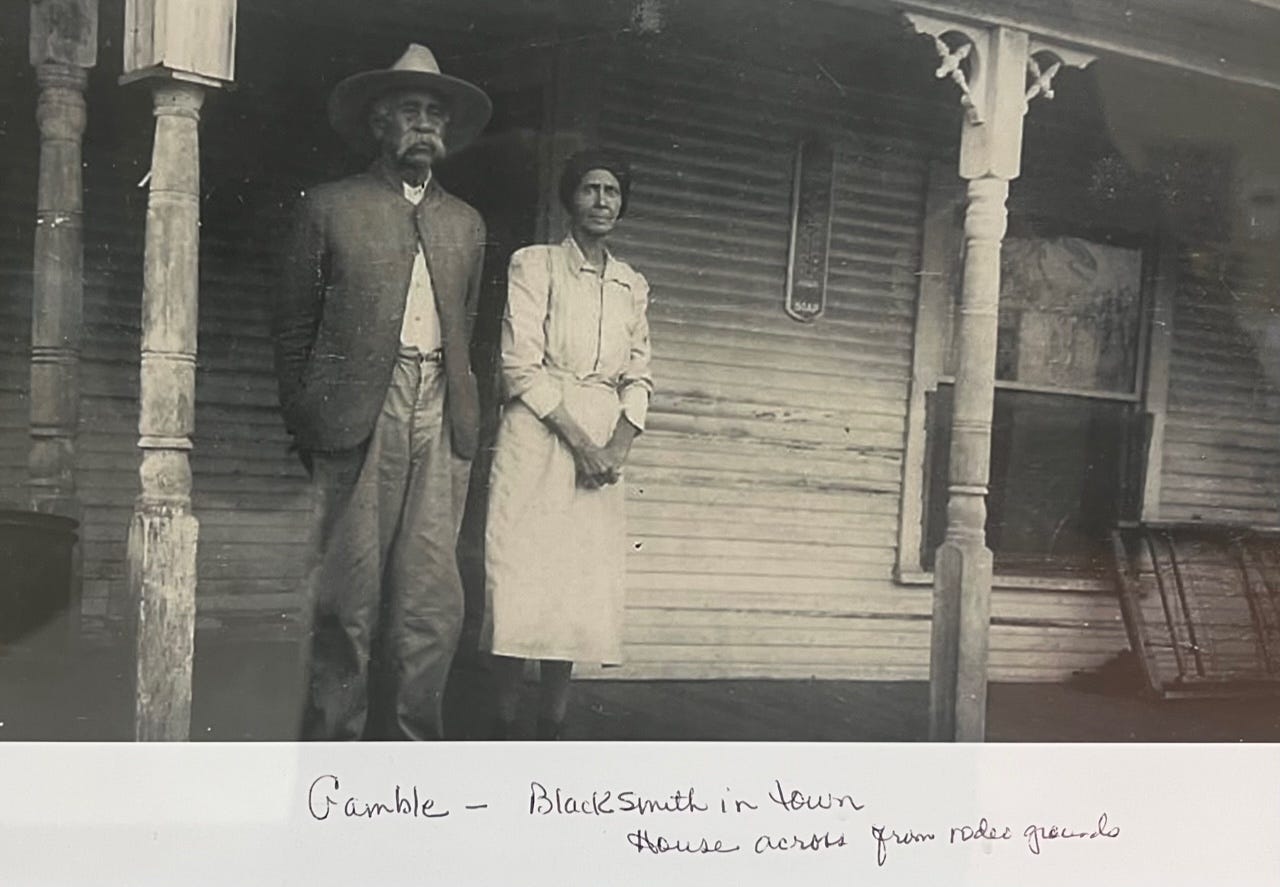 SOAP
Gamble – Blacksmith in town
House across from rodeo grounds